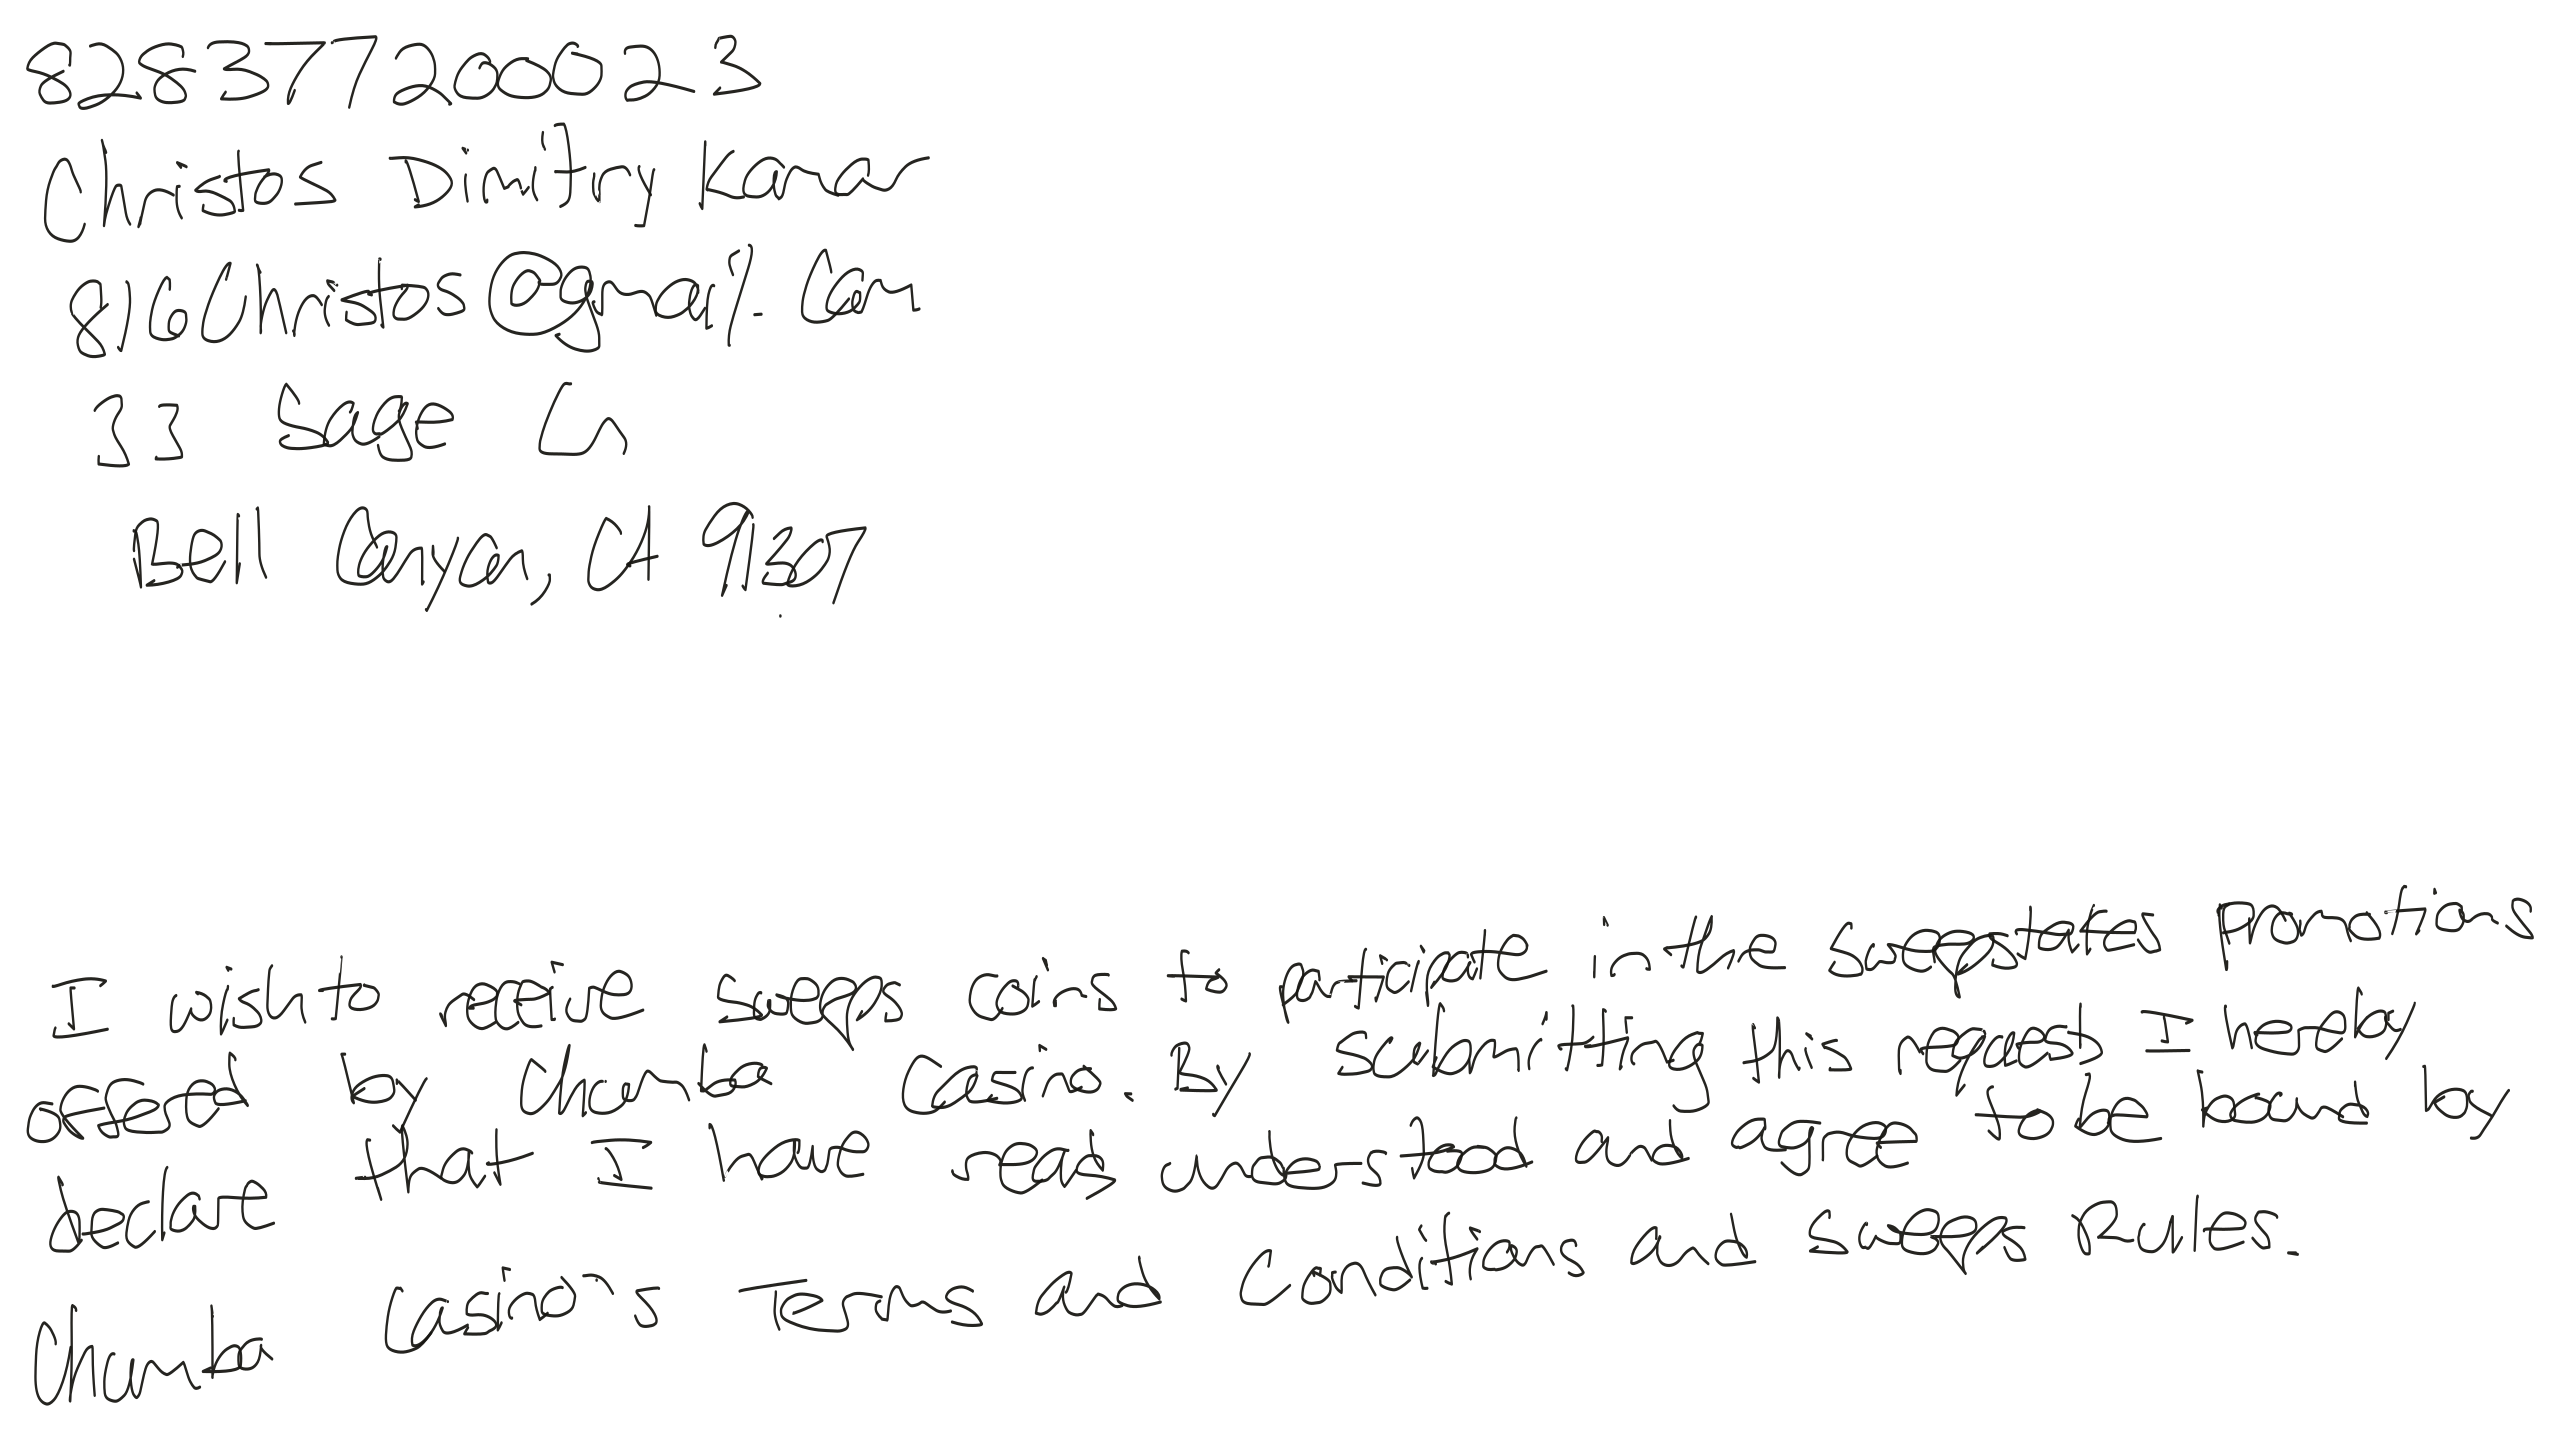 828377200023
Christos Dimitry Kanar
816Christos@gmail.com
33 Sage Ln
Bell Canyon, CA 91307
I wish to receive sweeps coins to participate in the sweepstakes promotions
offered by Chumba Casino. By submitting this request I hereby
declare that I have read understood and agree to be bound by
Chumba Casino's Terms and Conditions and Sweeps Rules.